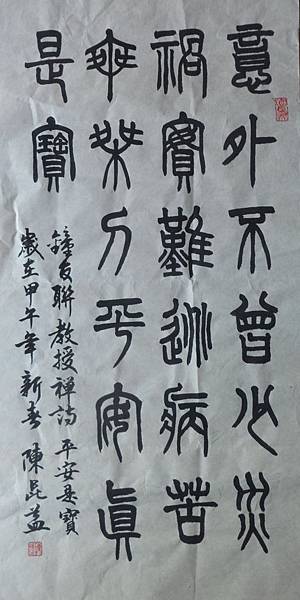 意外不曾少災
禍實難逃病苦
平安真
是寶
鐘友聯教授禪詩 平安是寶
歲在甲午年新春 陳昆益